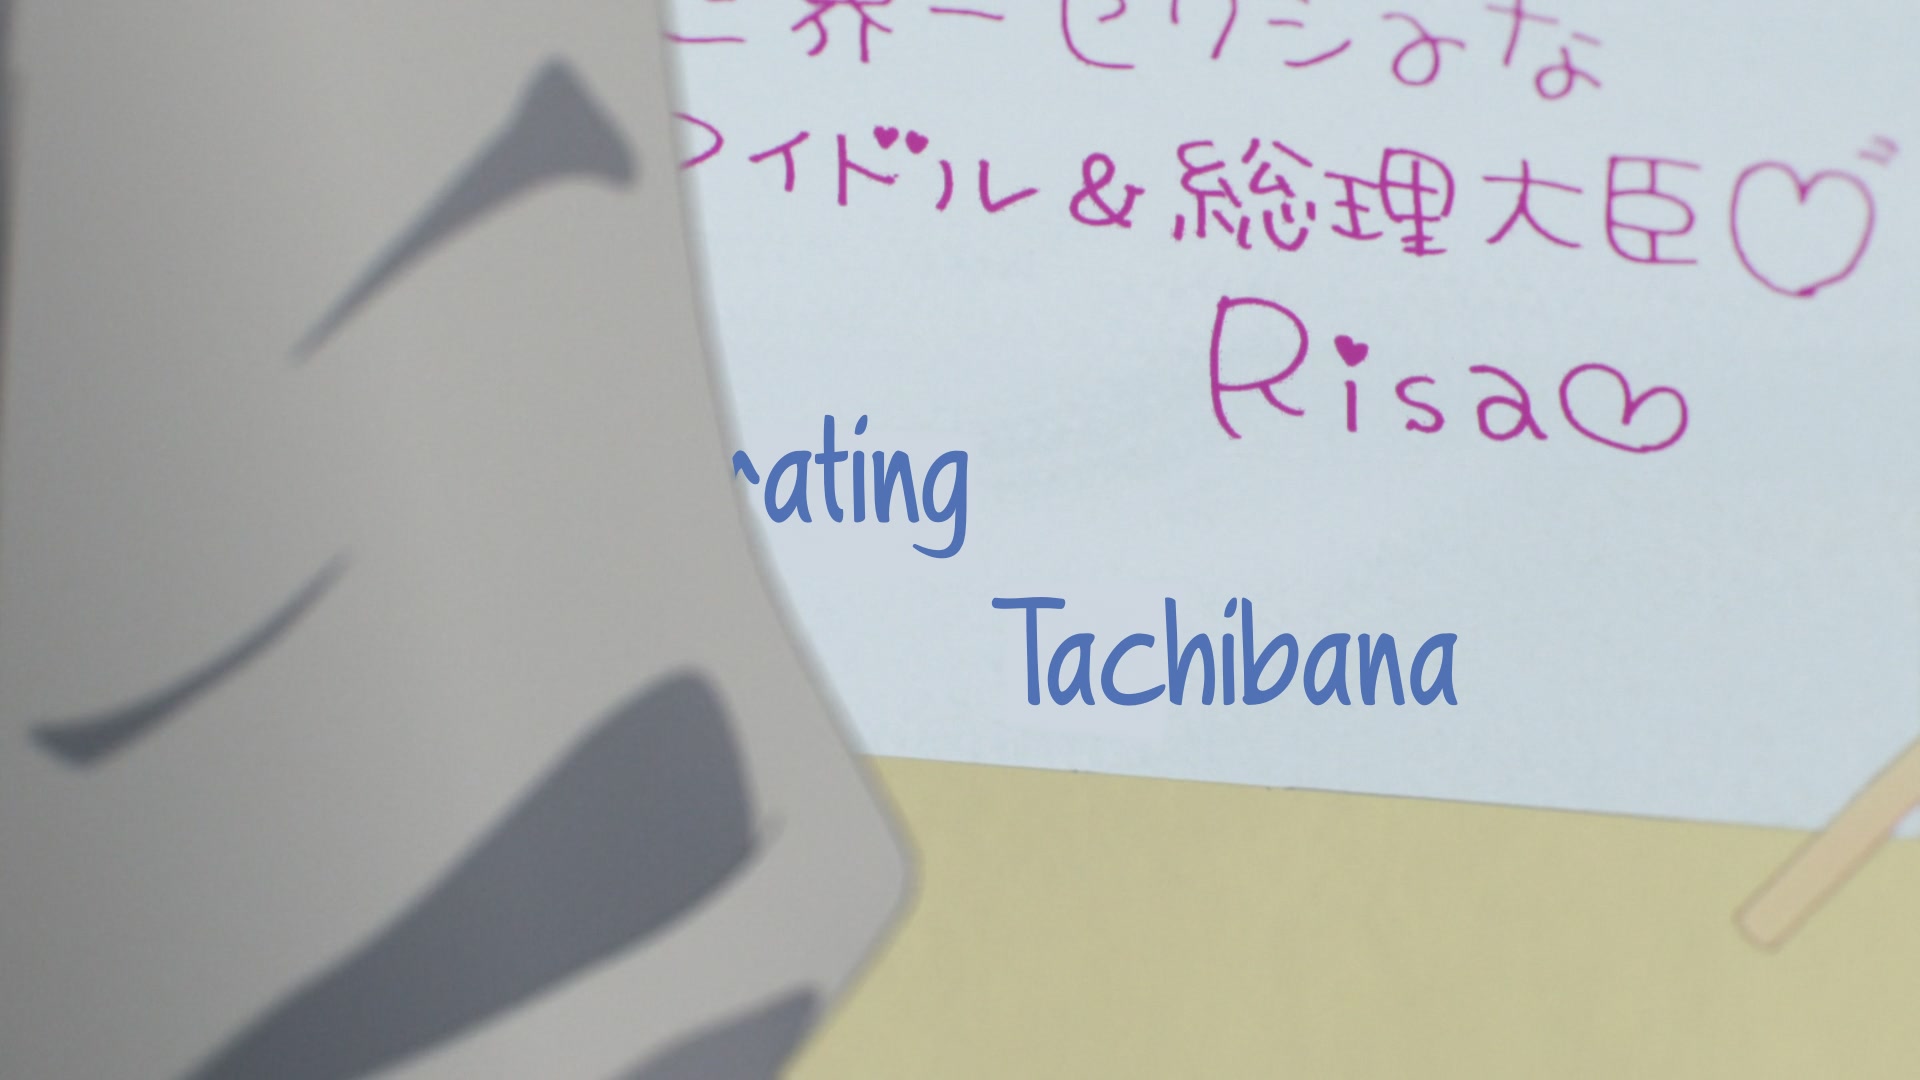 界一セクシーな
アイドル&総理大臣♡
Risa♡
ating
Tachibana